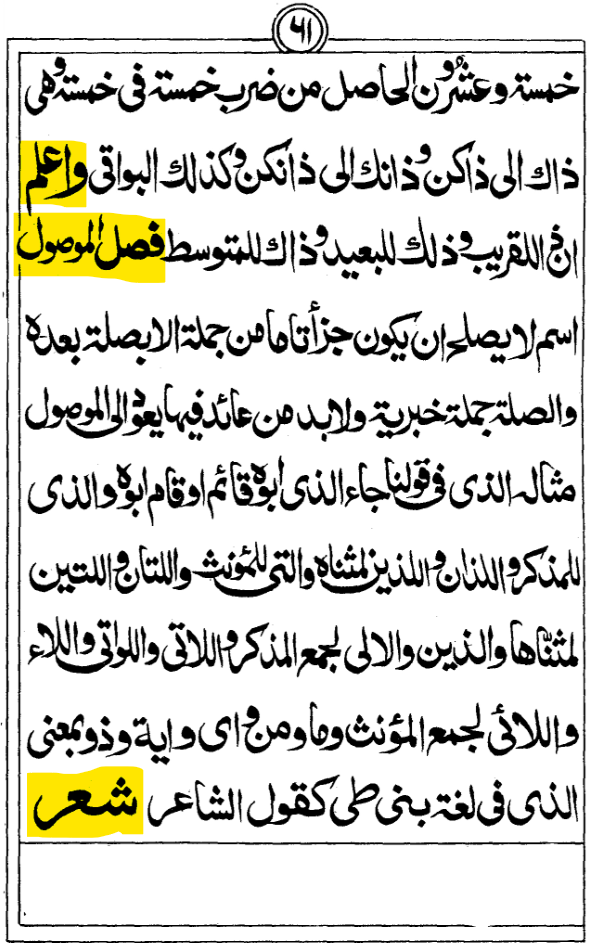 ٦١
خمسة وعشرون الحاصل من ضرب خمسة فى خمسة وهى
ذاك الى ذاكن وذانك الى ذانكن وكذلك البواقى واعلم
ان ذا للقريب وذلك للبعيد وذاك للمتوسط فصل الموصول
اسم لا يصلح ان يكون جزأ تاما من جملة الا بصلة بعده
والصلة جملة خبرية ولا بد من عائد فيها يعود الى الموصول
مثاله الذى فى قولنا جاء الذى ابوه قائم او قام ابوه والذى
للمذكر واللذان واللذين لمثناه والتى للمؤنث واللتان واللتين
لمثناها والذين والالى لجمع المذكر واللاتى واللواتى واللاء
واللائى لجمع المؤنث وما ومن واى واية وذو بمعنى
الذى فى لغة بنى طى كقول الشاعر شعر